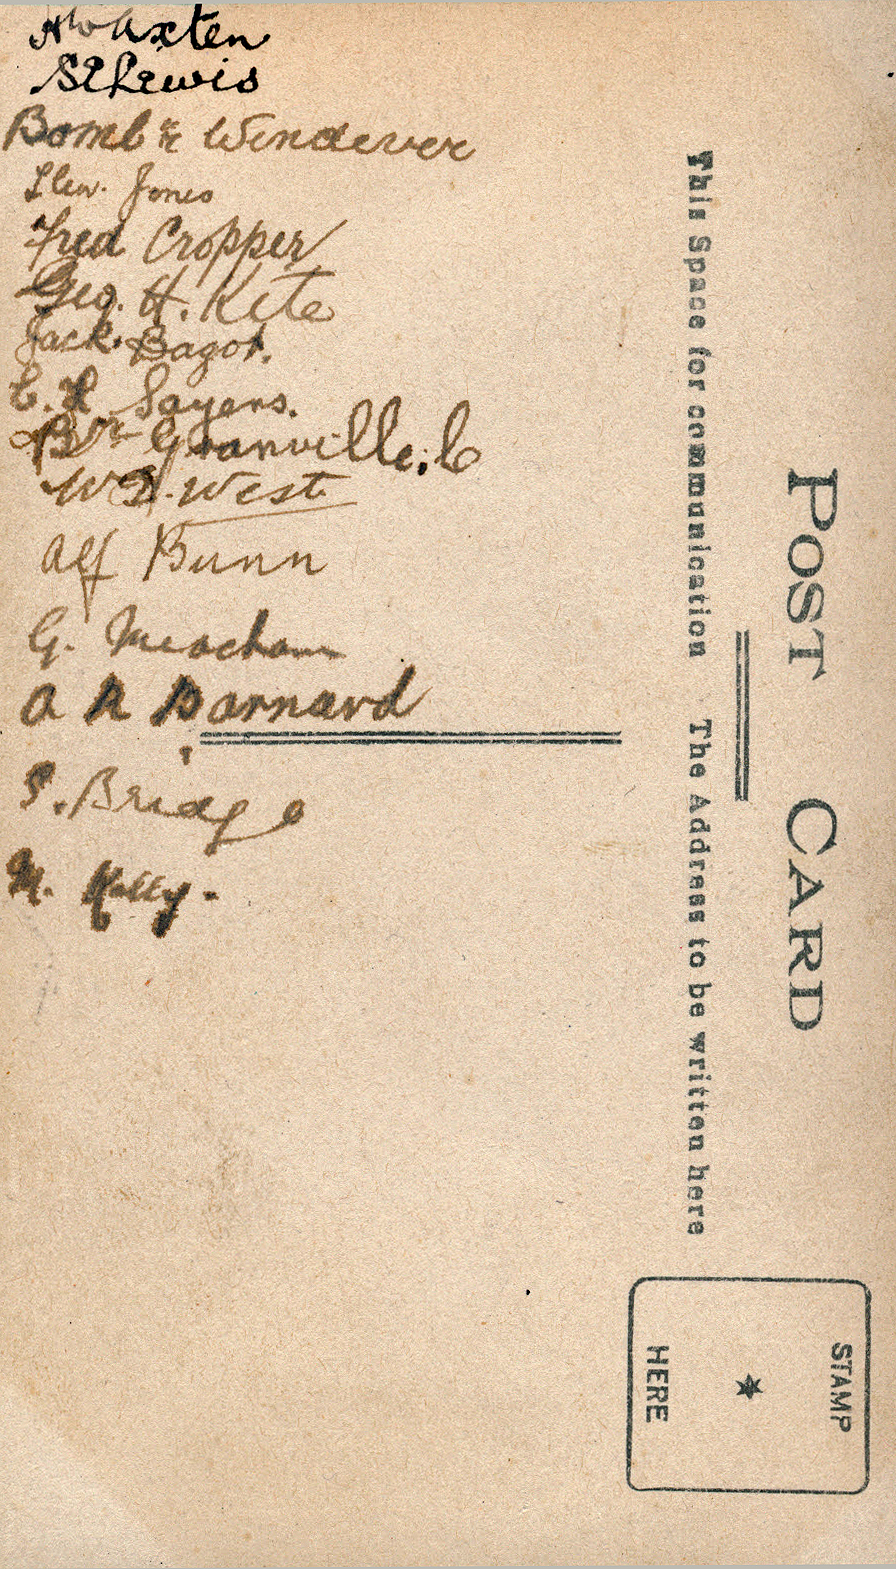 Axten
S E Lewis
Bombr Windever
Llew. Jones
Fred Cropper
Geo. H. Kete
Jack. Bagot.
C. H. Sayers.
Br Granville. C
W D. West
Alf Bunn
G. Meacham
A R Barnard
S. Bridge
M. Kelly.
POST CARD
This Space for communication
The Address to be written here
STAMP
HERE